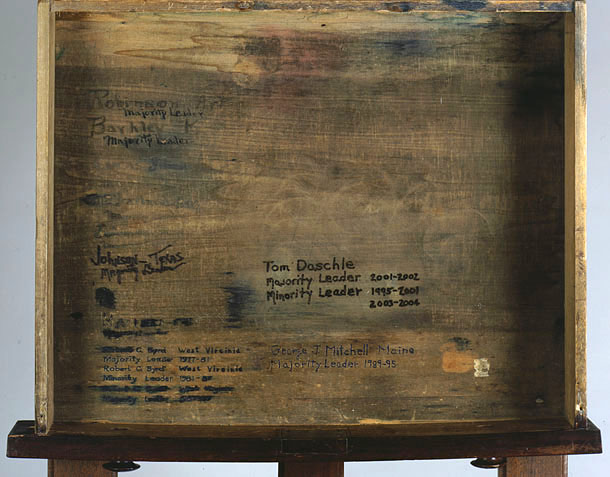 Robinson Ark
Majority Leader
Barkley K
Majority Leader
Johnson – Texas
Majority Leader
Tom Daschle
Majority Leader 2001-2002
Minority Leader 1995-2001
2003-2004
Robert C. Byrd West Virginia
Majority Leader 1977-81
Robert C. Byrd West Virginia
Minority Leader 1981-87
Majority Leader
George J. Mitchell Maine
Majority Leader 1989-95